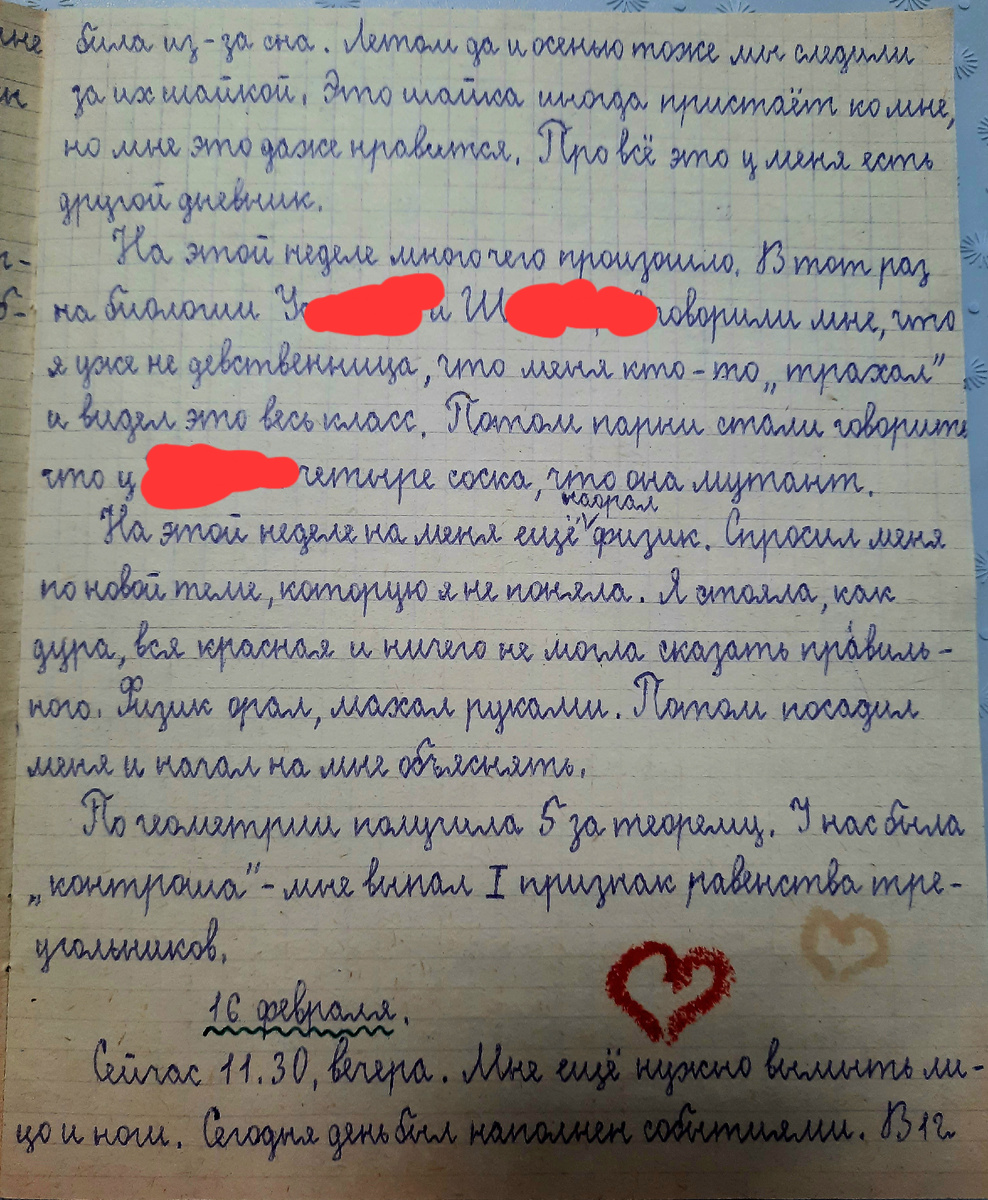 била из-за сна. Летом да и осенью тоже мы следили
за их шайкой. Это шайка иногда пристаёт ко мне,
но мне это даже нравится. Про всё это у меня есть
другой дневник.
На этой неделе много чего произошло. В тот раз
на биологии У и Ш говорили мне, что
я уже не девственница, что меня кто-то „трахал”
и видел это весь класс. Потом парни стали говорить
что у четыре соска, что она мутант.
наорал
На этой неделе на меня ещё физик. Спросил меня
по новой теме, которую я не поняла. Я стояла, как
дура, вся красная и ничего не могла сказать правиль-
ного. Физик орал, махал руками. Потом посадил
меня и начал на мне объяснять.
По геометрии получила 5 за теорему. У нас была
„контроша” - мне выпал I признак равенства тре-
угольников.
16 февраля.
Сейчас 11.30, вечера. Мне ещё нужно вымыть ли-
цо и ноги. Сегодня день был наполнен событиями. В 12